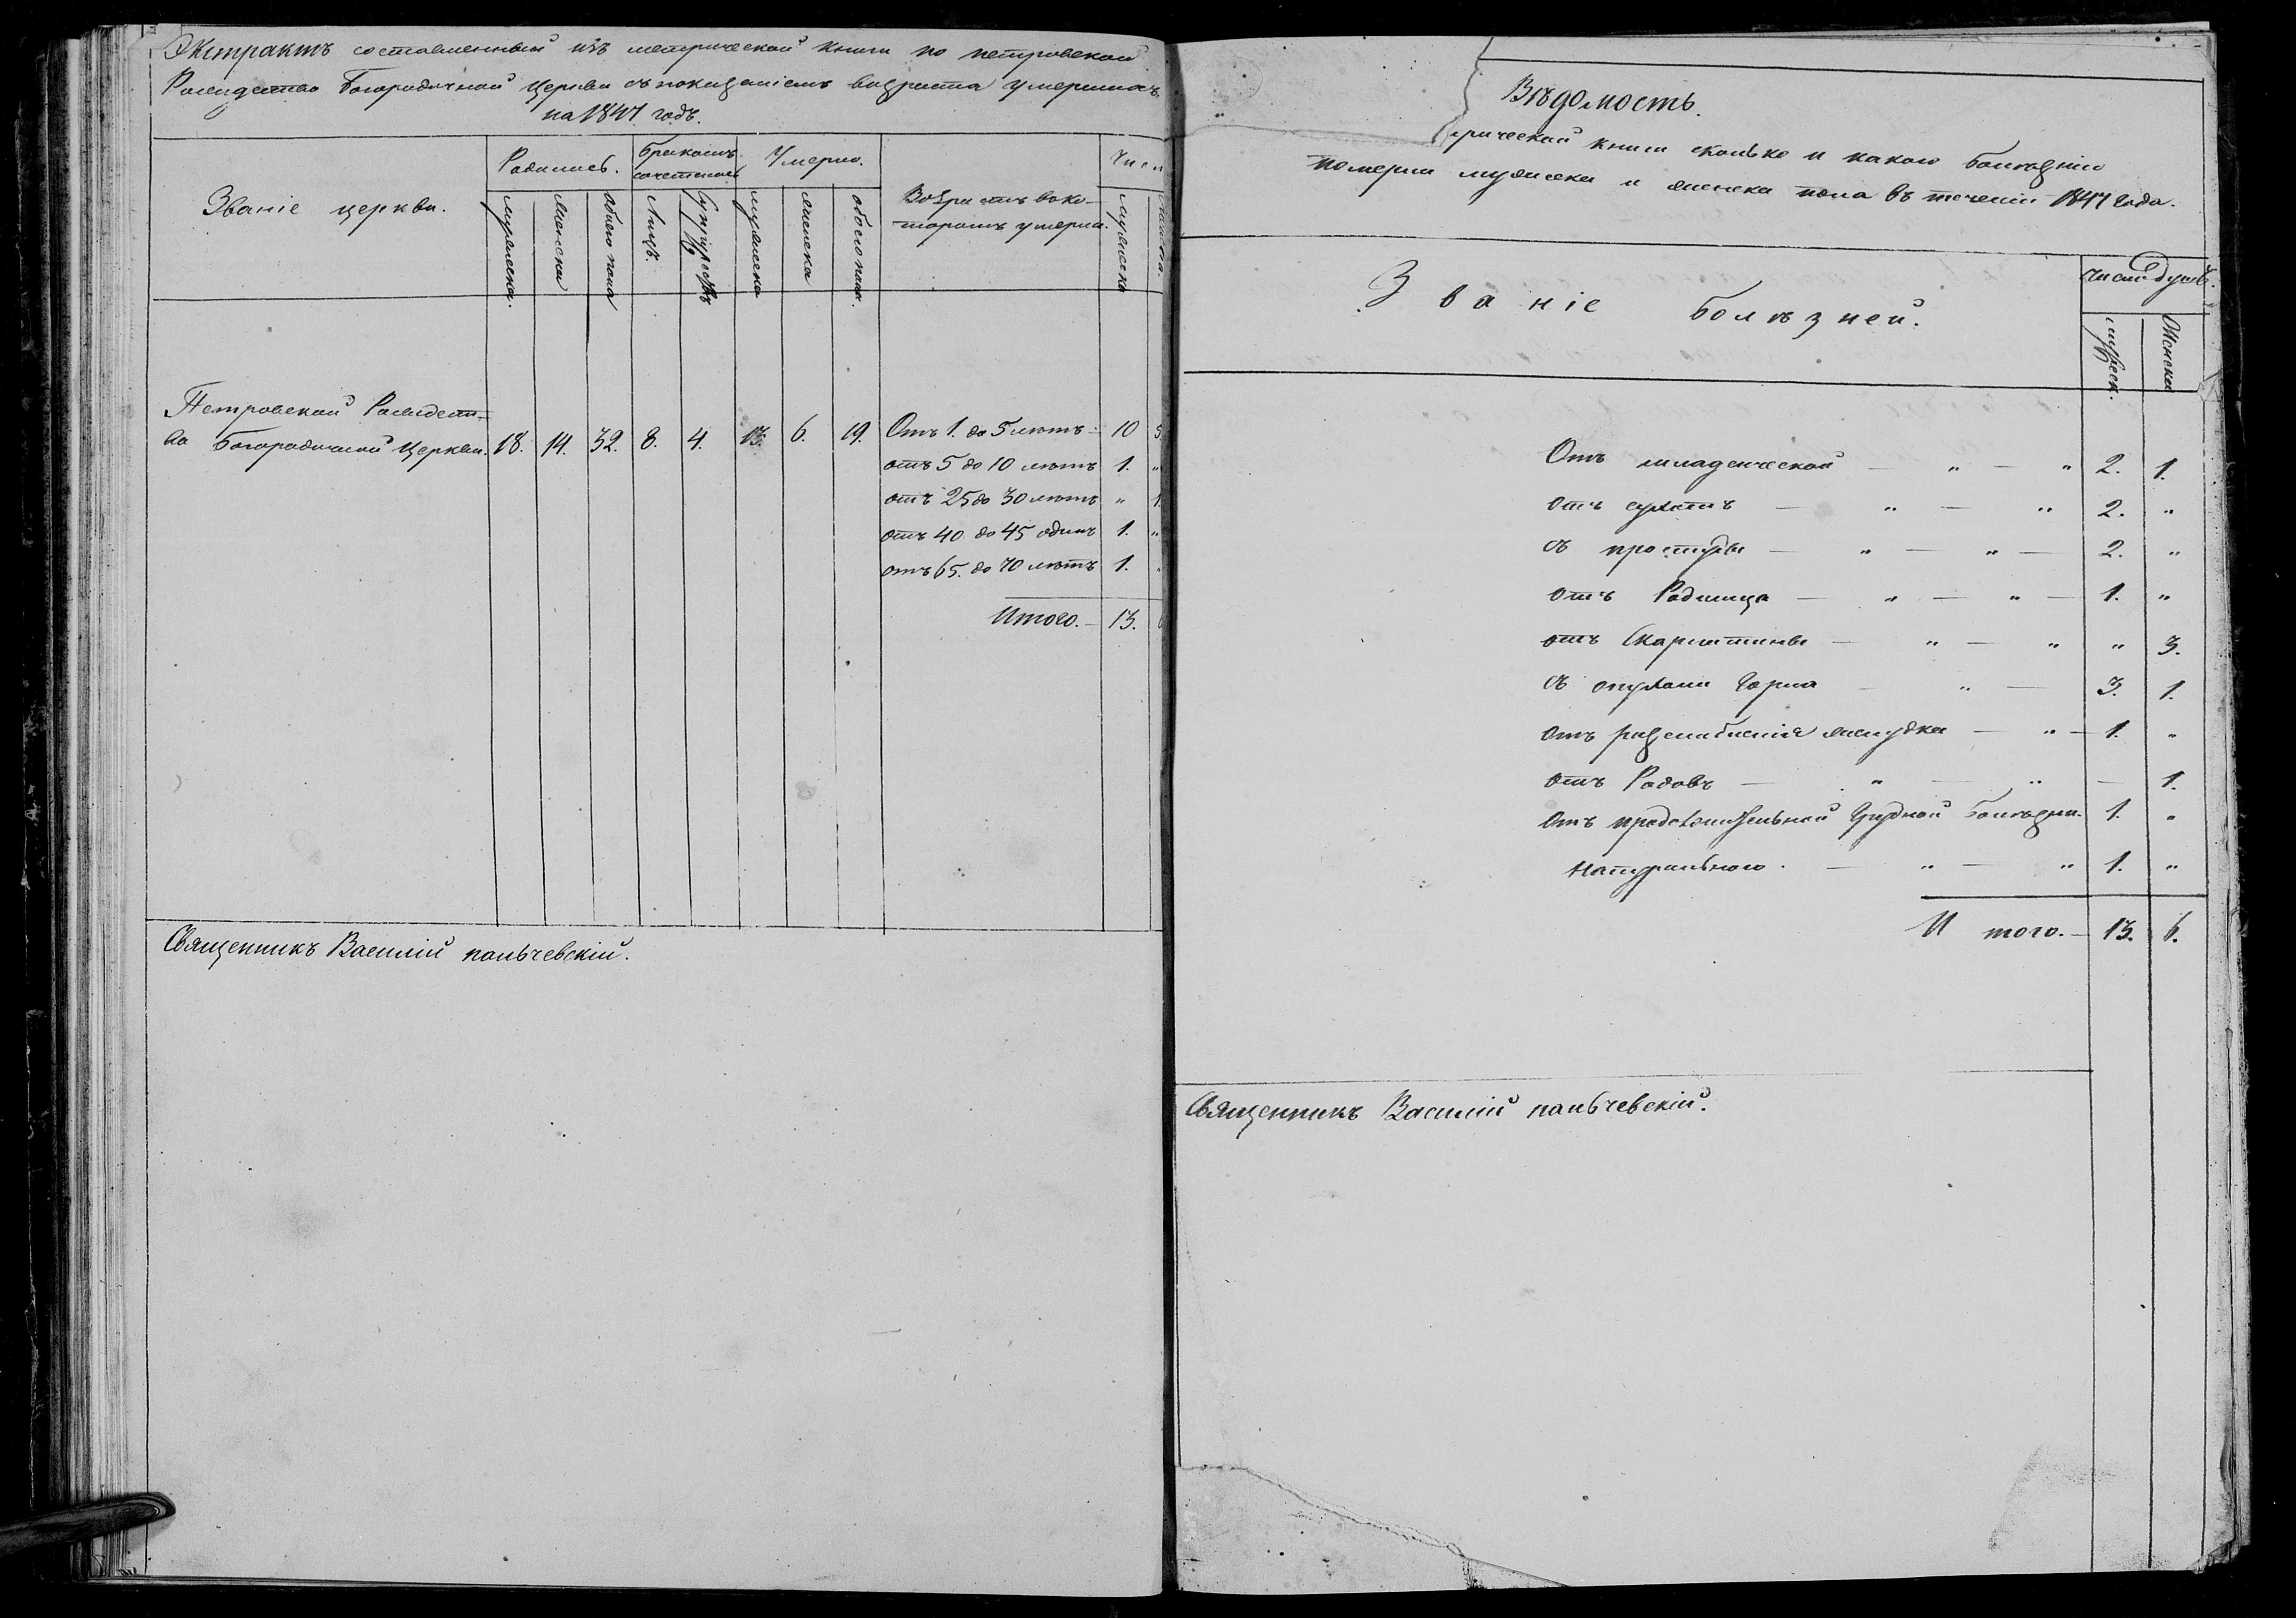 Экстрактъ составленный изъ метрической книги по петровской
Рождество Богородичной Церкви съ показаніемъ возраста умершихъ
на 1847 годъ.
Званіе церкви.
Родились.
Бракомъ сочетались
Умерло.
Возрастъ въ ко-
торомъ умерли.
Числ
мужеска.
женска
обоего пола
Лицъ.
Супружествъ
мужеска
женска
обоего пола.
мужеска
Петровской Рождест-
ва Богородичной Церкви. 18. 14. 32. 8. 4. 13. 6. 19. Отъ 1. до 5 летъ 10 5
отъ 5 до 10 летъ 1. "
отъ 25 до 30 летъ " 1.
отъ 40 до 45 одинъ 1. "
отъ 65. до 70 летъ 1.
Итого. 13. 6
Священникъ Василій пальчевскій.
Вѣдомость.
рической книги сколько и какою болѣзнію
померли мужеска и женска пола въ теченіи 1847 года.
Званіе болѣзней.
Число душъ.
мужеск.
Женска
Отъ младенческой — " — " 2. 1.
отъ сухотъ — " — " 2. "
съ простуды — " — " — 2. "
отъ Родимца — " — " — 1. "
отъ Скарлатины — " — " " 3.
съ опухоли Горла — " — 3. 1.
отъ разслабленія желудка — " — 1. "
отъ Родовъ — " — " — 1.
отъ продолжительной Грудной болѣзни. 1. "
Натурального. — " — " 1. "
И того. — 13. 6.
Священникъ Василій пальчевскій.